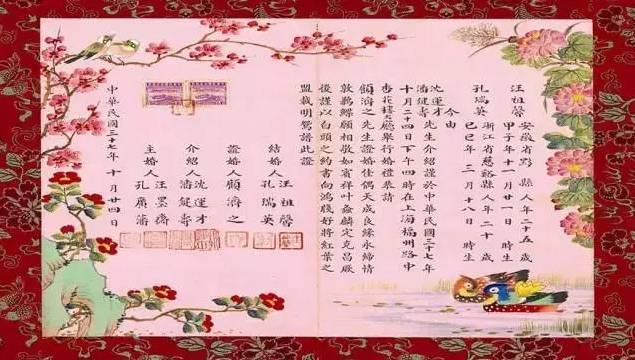 汪祖馨 安徽省黟縣人年二十五歲
甲子年十一月廿一日 時生
孔瑞英 浙江省慈谿縣人年二十歲
己巳年三月十八日 時生
今由
沈運才
潘健壽 先生介紹謹於中華民國三十七年
十月二十四日下午四時在上海福州路中
杏花樓大廳舉行婚禮恭請
顧濟之先生證婚佳偶天成良緣永締情
敦鶼鰈願相敬如賓祥叶螽麟定克昌厥
後謹以白頭之約書向鴻牋好將紅葉之
盟載明鴛譜此證
結婚人 汪祖馨
孔瑞英
證婚人 顧濟之
介紹人 沈運才
潘健壽
主婚人 汪墨
孔廣
中華民國三十七年十月廿四日